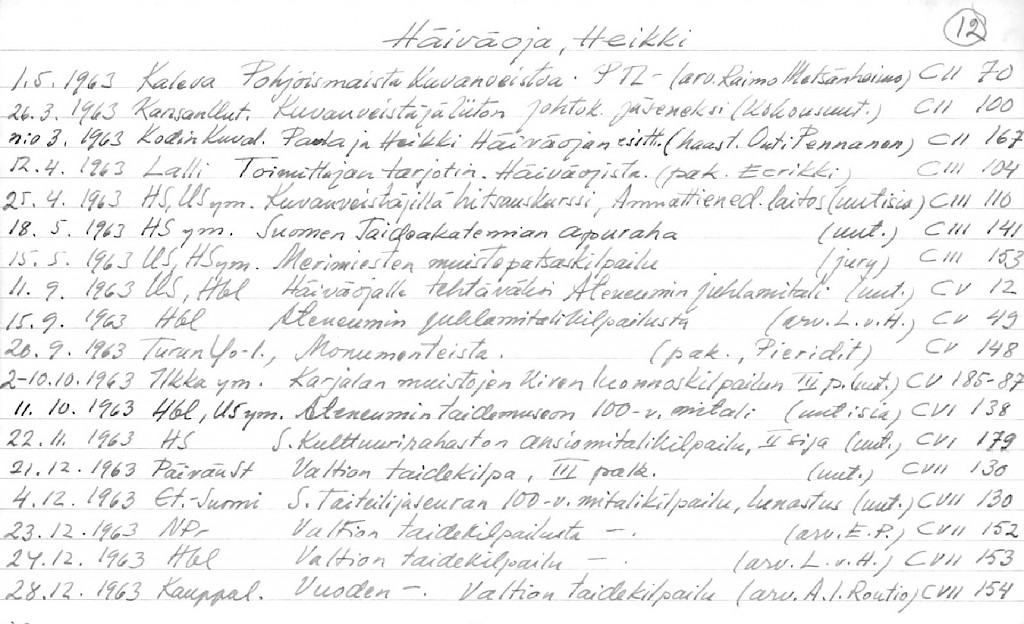 12
Häiväoja, Heikki
1.5. 1963 Kaleva Pohjoismaista Kuvanveistoa. PTL - (arv. Raimo Metsänheimo) CII 70
26.3. 1963 Kansanllut. Kuvanveistäjäliiton johtok. jäseneksi (Kokousuut.) CII 100
n:o 3. 1963 KodinKuval. Paula ja Heikki Häiväojan esitt. (haast. Outi Pennanen) CII 167
12.4. 1963 Lalli Toimittajan tarjotin. Häiväojista. (pak. Eerikki) CIII 104
25.4. 1963 HS, US ym. Kuvanveistäjillä hitsauskurssi, Ammattiened. laitos (uutisia) CIII 110
18.5. 1963 HS ym. Suomen Taideakatemian apuraha (uut.) CIII 141
15.5. 1963 US, HS ym. Merimiesten muistopatsaskilpailu (jury) CIII 153
11.9. 1963 US, Hbl Häiväojalla tehtäväksi Ateneumin juhlamitali (uut.) CV 12
15.9. 1963 Hbl Ateneumin juhlamitalikilpailusta (arv. L.v.H.) CV 49
20.9. 1963 Turun Yo-l., Monumenteista. (pak., Pieridit) CV 148
2-10.10.1963 Ilkka ym. Karjalan muistojen Kiven luonnoskilpailun III p. (uut.) CV 185-87
11.10. 1963 Hbl, US ym. Ateneumin taidemuseon 100-v. mitali (uutisia) CVI 138
22.11. 1963 HS S. Kulttuurirahaston ansiomitalikilpailu, II sija (uut.) CVI 179
21.12. 1963 PäivänSt Valtion taidekilpa, III palk. (uut.) CVII 130
4.12. 1963 Et.-Suomi S. Taiteilijaseuran 100-v. mitalikilpailu, lunastus (uut.) CVII 130
23.12. 1963 NPr Valtion taidekilpailusta -. (arv. E.P.) CVII 152
24.12. 1963 Hbl Valtion taidekilpailu -. (arv. L.v.H.) CVII 153
28.12. 1963 Kauppal. Vuoden -. Valtion taidekilpailu (arv. A.I. Routio) CVII 154